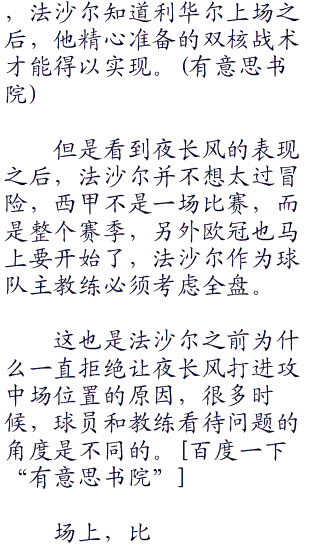 ，法沙尔知道利华尔上场之
后，他精心准备的双核战术
才能得以实现。(有意思书
院)
但是看到夜长风的表现
之后，法沙尔并不想太过冒
险，西甲不是一场比赛，而
是整个赛季，另外欧冠也马
上要开始了，法沙尔作为球
队主教练必须考虑全盘。
这也是法沙尔之前为什
么一直拒绝让夜长风打进攻
中场位置的原因，很多时
候，球员和教练看待问题的
角度是不同的。[百度一下
“有意思书院”]
场上，比